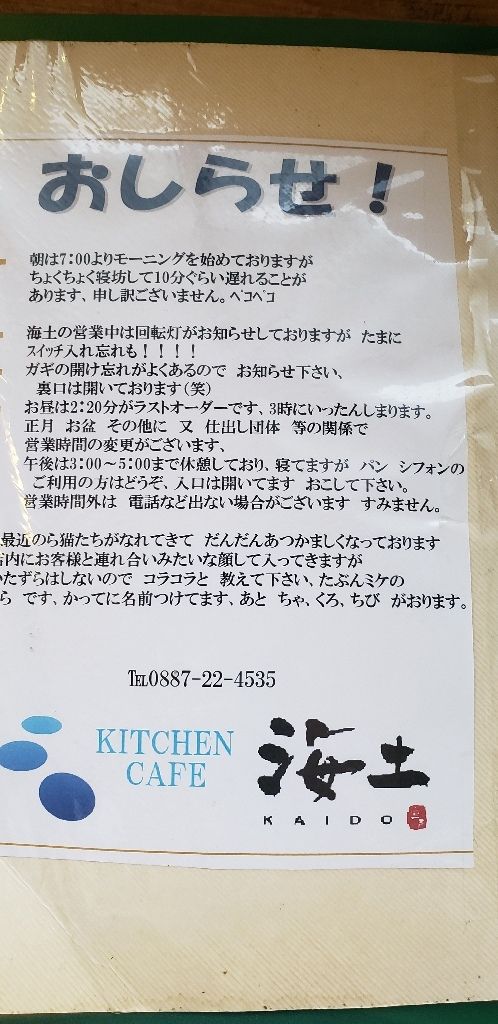 おしらせ！
朝は7:00よりモーニングを始めておりますが
ちょくちょく寝坊して10分ぐらい遅れることが
あります、申し訳ございません。ペコペコ
海土の営業中は回転灯がお知らせしておりますが たまに
スイッチ入れ忘れも！！！！
ガギの開け忘れがよくあるので お知らせ下さい、
裏口は開いております(笑)
お昼は2:20分がラストオーダーです、3時にいったんしまります。
正月 お盆 その他に 又 仕出し団体 等の関係で
営業時間の変更がございます、
午後は3:00～5:00まで休憩しており、寝てますが パン シフォンの
ご利用の方はどうぞ、入口は開いてます おこして下さい。
営業時間外は 電話など出ない場合がございます すみません。
最近のら猫たちがなれてきて だんだんあつかましくなっております
内にお客様と連れ合いみたいな顔して入ってきますが
たずらはしないので コラコラと 教えて下さい、たぶんミケの
ら です、かってに名前つけてます、あと ちゃ、くろ、ちび がおります。
℡0887-22-4535
KITCHEN
CAFE
海土
KAIDO